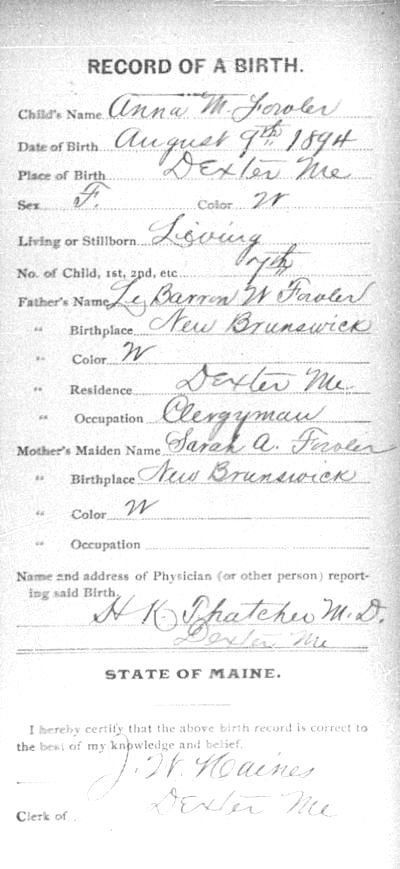 RECORD OF A BIRTH.
Child's Name Anna M. Fowler
Date of Birth August 9th 1894
Place of Birth Dexter Me
Sex F. Color W
Living or Stillborn Living
No. of Child, 1st, 2nd, etc 7th
Father's Name Le Barron W Fowler
" Birthplace New Brunswick
" Color W
" Residence Dexter Me.
" Occupation Clergyman
Mother's Maiden Name Sarah A. Fowler
" Birthplace New Brunswick
" Color W
" Occupation
Name and address of Physician (or other person) report-
ing said Birth,
H K. Thatcher M.D.
Dexter Me
STATE OF MAINE.
I hereby certify that the above birth record is correct to
the best of my knowledge and belief.
J. W. Haines
Clerk of Dexter Me